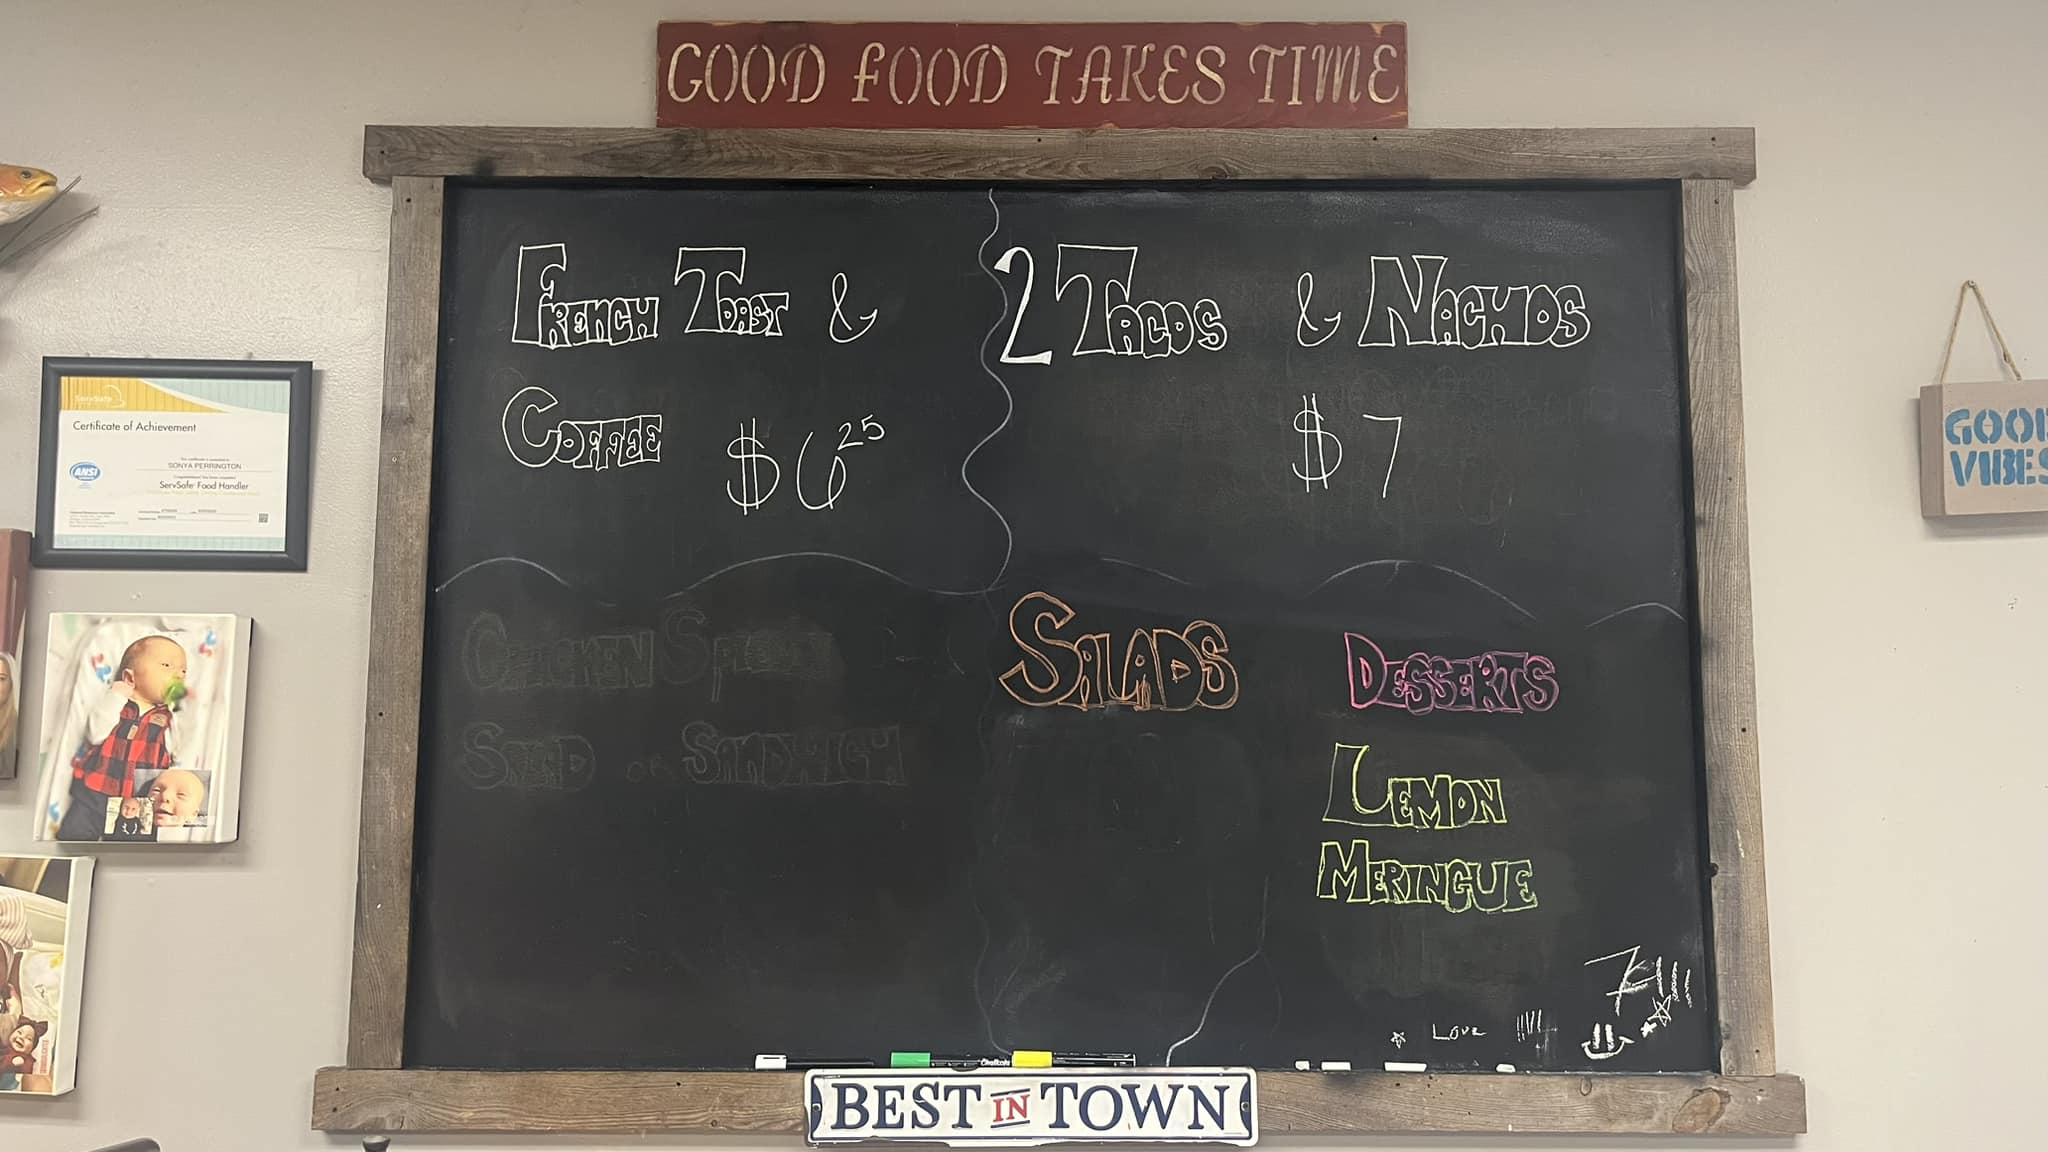 GOOD FOOD TAKES TIME
FRENCH TOAST &
COFFEE $6 25
2 TACOS & NACHOS
$7
CHICKEN
SALAD OR SANDWICH
SALADS
DESSERTS
LEMON
MERINGUE
LOVE
BEST IN TOWN
ServSafe
Certificate of Achievement
SONYA PERRINGTON
ANSI
ServSafe Food Handler
GOOD
VIBES